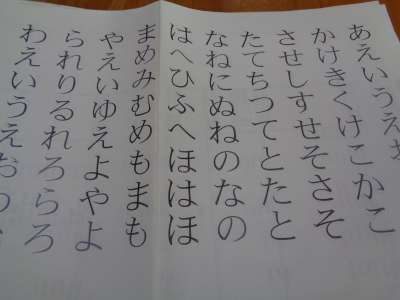 あえいうえお
かけきくけこかこ
させしすせそさそ
たてちつてとたと
なねにぬねのなの
はへひふへほはほ
まめみむめもまも
やえいゆえよやよ
られりるれろらろ
わえいうえおわ